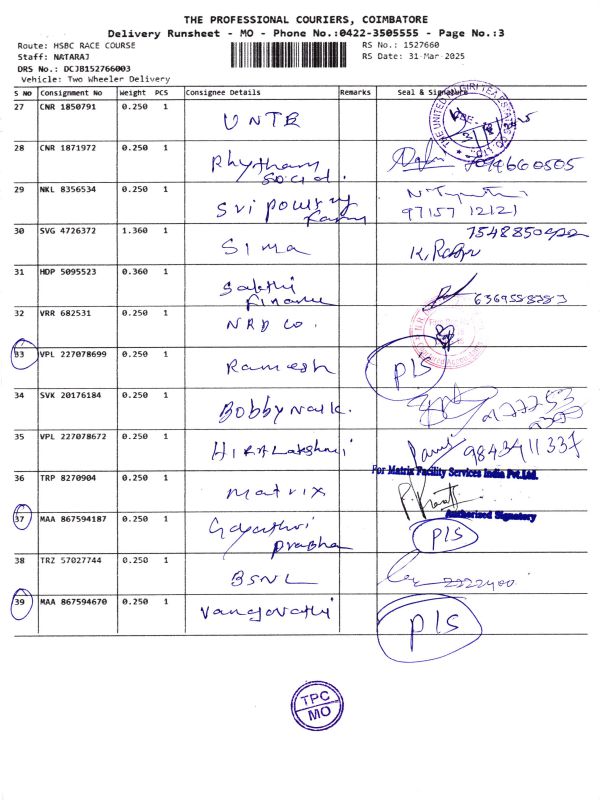 THE PROFESSIONAL COURIERS, COIMBATORE
Delivery Runsheet - MO - Phone No.:0422-3505555 - Page No.:3
Route: HSBC RACE COURSE
RS No.: 1527660
Staff: NATARAJ
RS Date: 31-Mar-2025
DRS No.: DCJB152766003
Vehicle: Two Wheeler Delivery
S NO Consignment No Weight PCS Consignee Details Remarks Seal & Signature
27 CNR 1850791 0.250 1 UNTE
28 CNR 1871972 0.250 1 Rhytham
29 NKL 8356534 0.250 1 Sri
97157 12121
30 SVG 4726372 1.360 1 Sima
31 HDP 5095523 0.360 1 Sakthi
Finance
32 VRR 682531 0.250 1 NRD CO.
33 VPL 227078699 0.250 1 Ramesh PLS
34 SVK 20176184 0.250 1 Bobby
35 VPL 227078672 0.250 1 HIRA Lakshmi
For Matrix Facility Services India Pvt.Ltd.
36 TRP 8270904 0.250 1 matrix
Authorised Signatory
37 MAA 867594187 0.250 1 Gayathri PLS
Prabha
38 TRZ 57027744 0.250 1 BSNL 2222400
39 MAA 867594670 0.250 1 PLS
TPC
MO